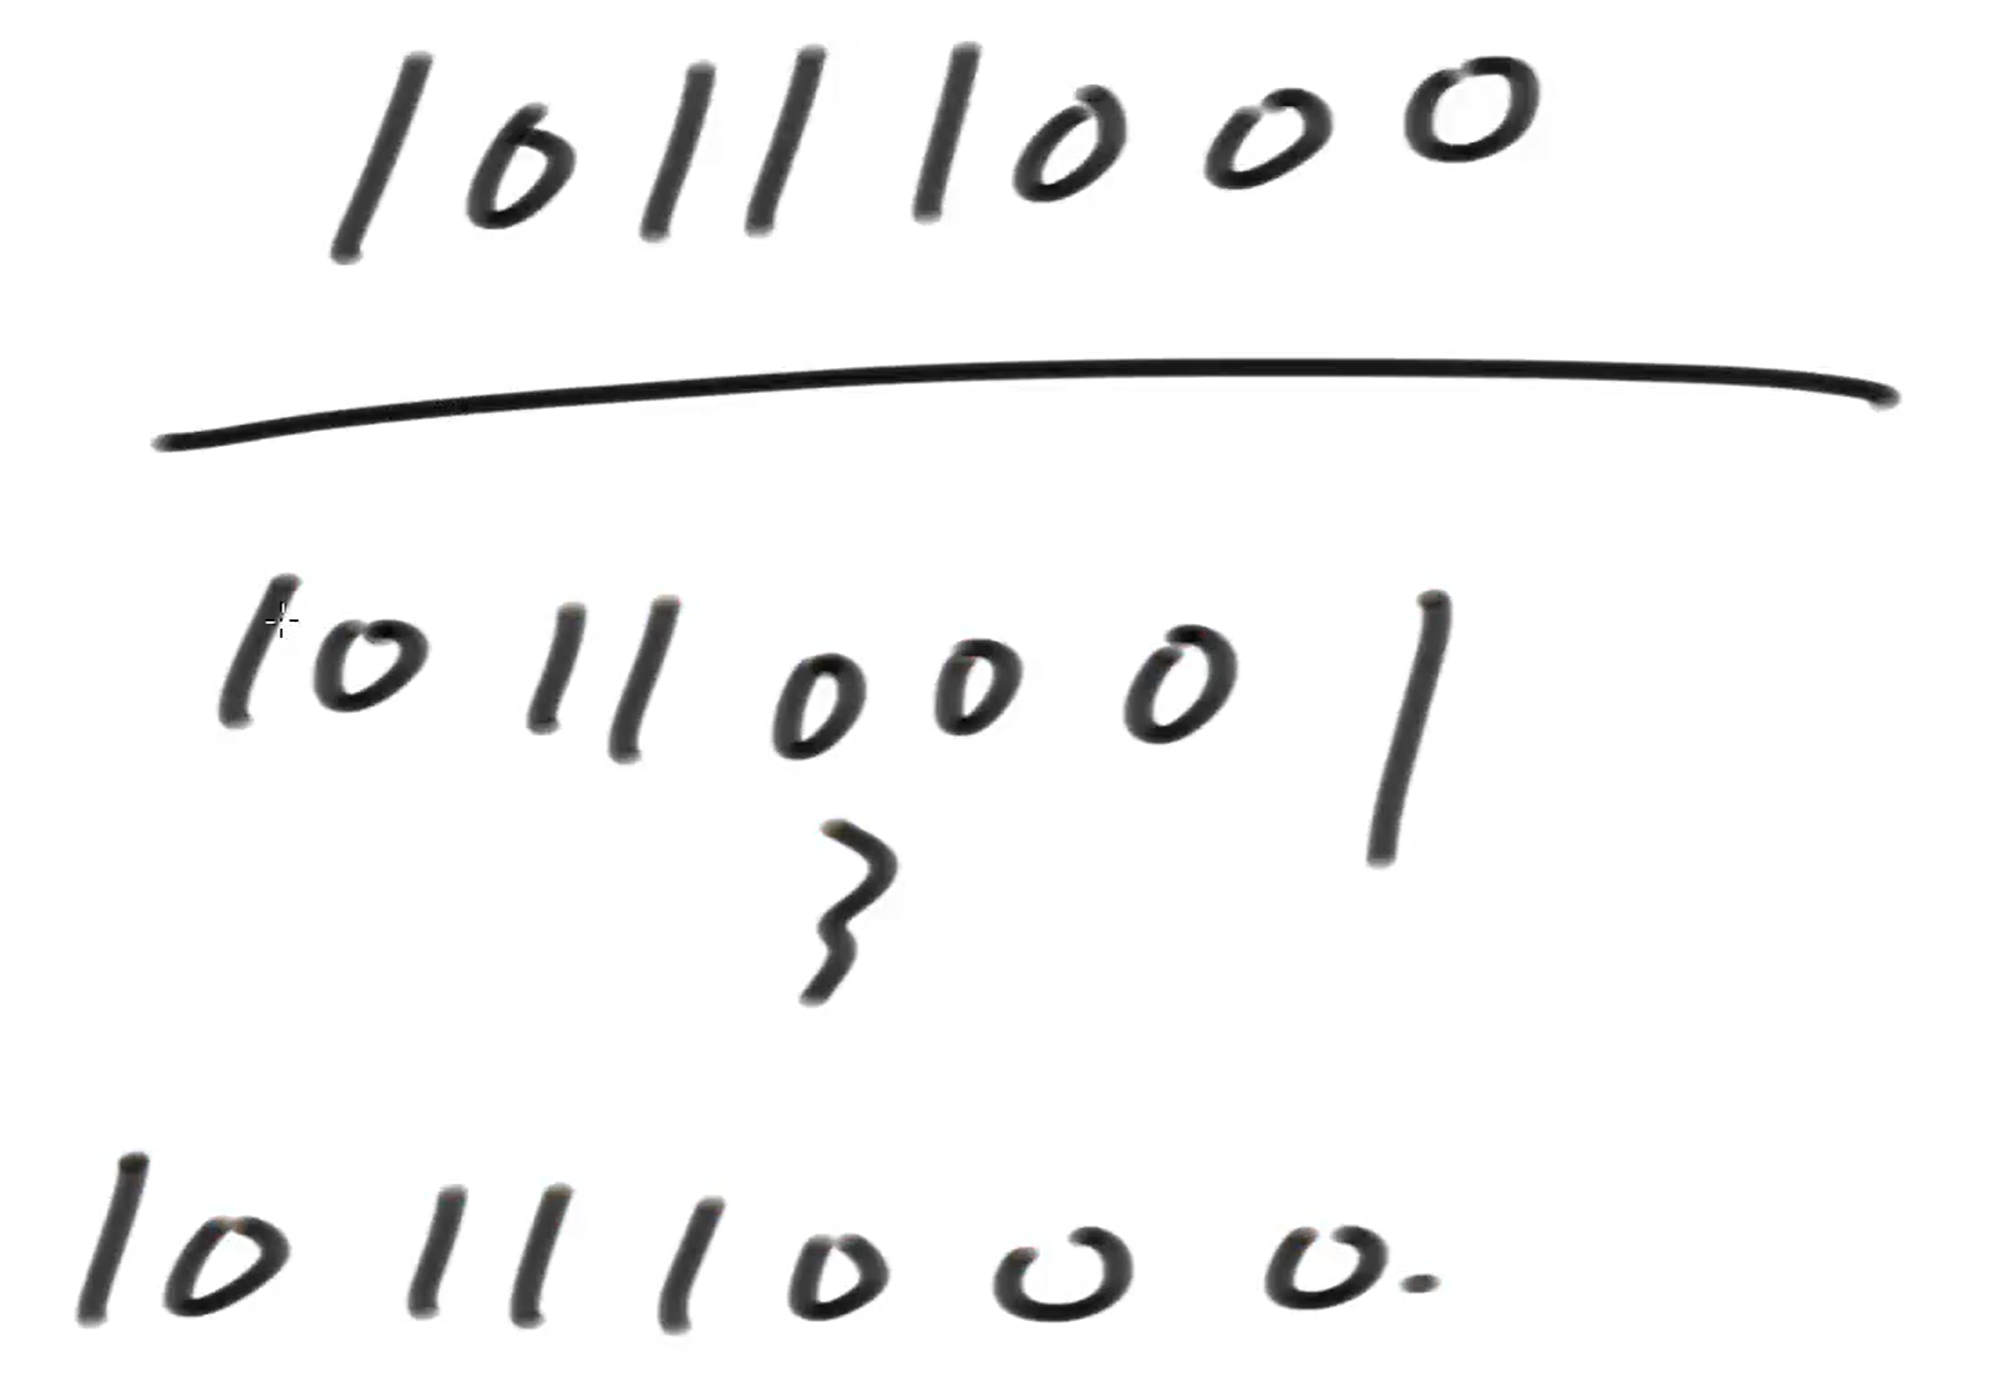 10111000
10110001
10111000.